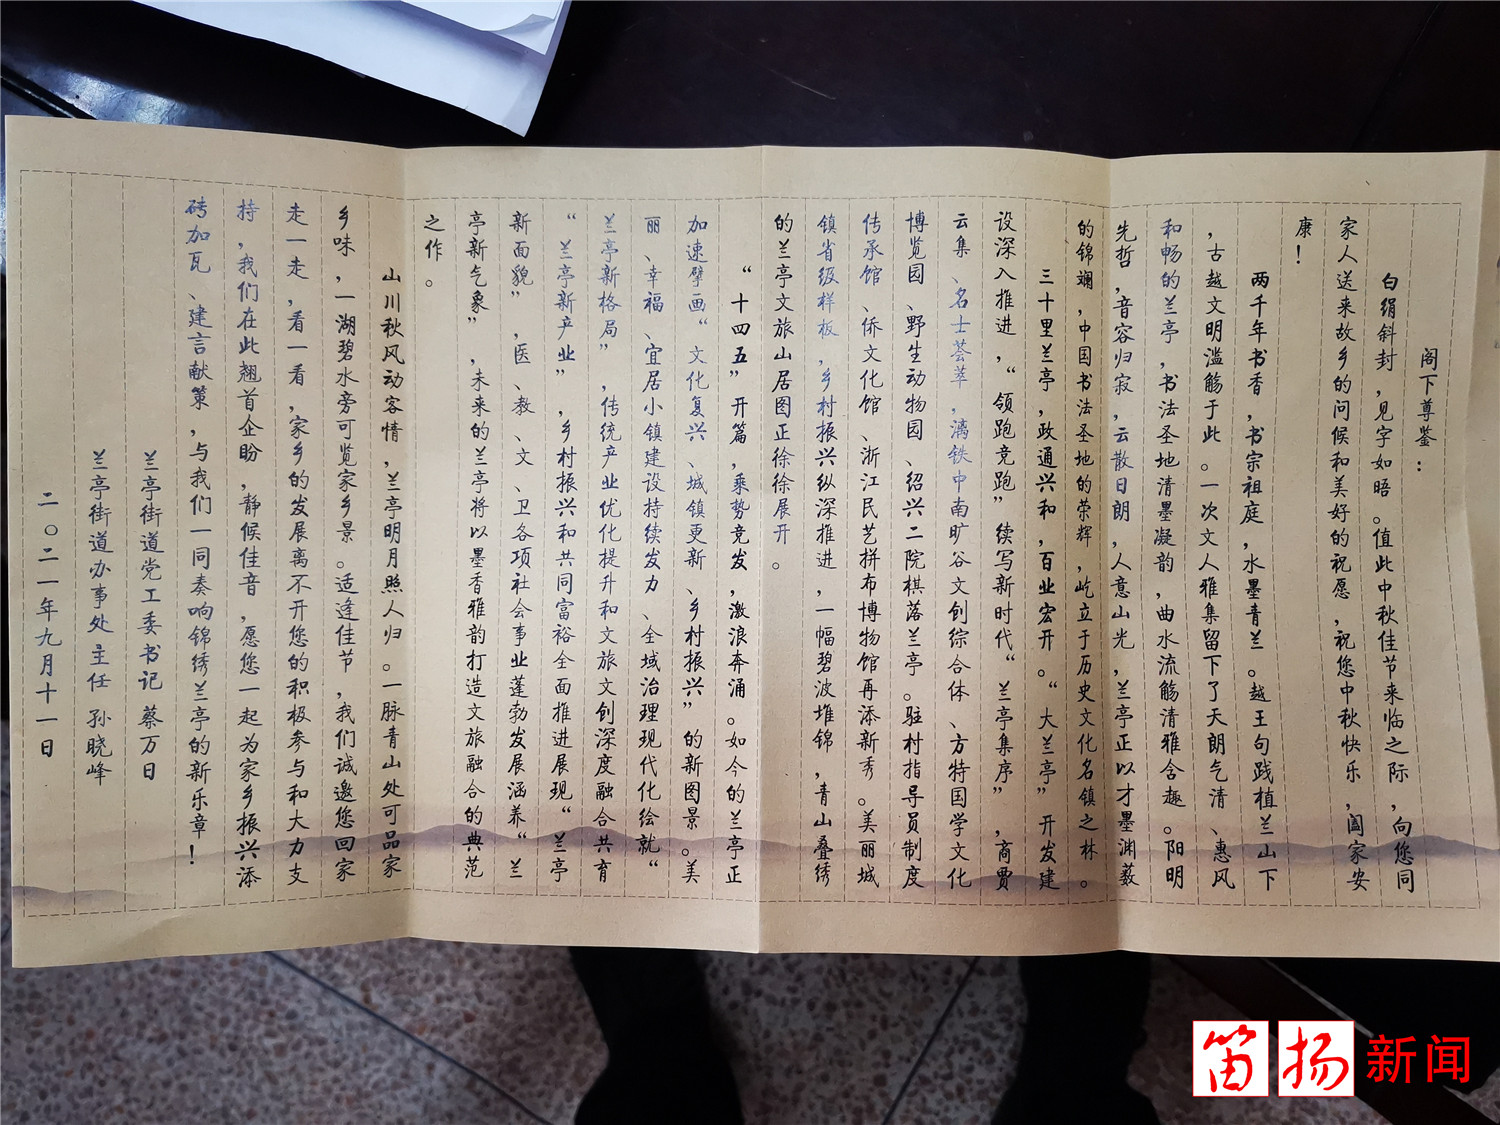 阁下尊鉴：
白绢斜封，见字如晤。值此中秋佳节来临之际，向您同
家人送来故乡的问候和美好的祝愿，祝您中秋快乐，阖家安
康！
两千年书香，书宗祖庭，水墨青兰。越王句践植兰山下
，古越文明滥觞于此。一次文人雅集留下了天朗气清、惠风
和畅的兰亭，书法圣地清墨凝韵，曲水流觞清雅含趣。阳明
先哲，音容归寂，云散日朗，人意山光，兰亭正以才墨渊薮
的锦斓，中国书法圣地的荣辉，屹立于历史文化名镇之林。
三十里兰亭，政通兴和，百业宏开。“大兰亭”开发建
设深入推进，“领跑竞跑”续写新时代“兰亭集序”，商贾
云集、名士荟萃，漓铁中南旷谷文创综合体、方特国学文化
博览园、野生动物园、绍兴二院棋落兰亭。驻村指导员制度
传承馆、侨文化馆、浙江民艺拼布博物馆再添新秀。美丽城
镇省级样板，乡村振兴纵深推进，一幅碧波堆锦，青山叠绣
的兰亭文旅山居图正徐徐展开。
“十四五”开篇，乘势竞发，激浪奔涌。如今的兰亭正
加速擘画“文化复兴、城镇更新、乡村振兴”的新图景。美
丽、幸福、宜居小镇建设持续发力、全域治理现代化绘就“
兰亭新格局”，传统产业优化提升和文旅文创深度融合共育
“兰亭新产业”，乡村振兴和共同富裕全面推进展现“兰亭
新面貌”，医、教、文、卫各项社会事业蓬勃发展涵养“兰
亭新气象”，未来的兰亭将以墨香雅韵打造文旅融合的典范
之作。
山川秋风动客情，兰亭明月照人归。一脉青山处可品家
乡味，一湖碧水旁可览家乡景。适逢佳节，我们诚邀您回家
走一走，看一看，家乡的发展离不开您的积极参与和大力支
持，我们在此翘首企盼，静候佳音，愿您一起为家乡振兴添
砖加瓦、建言献策，与我们一同奏响锦绣兰亭的新乐章！
兰亭街道党工委书记 蔡万日
兰亭街道办事处主任 孙晓峰
二〇二一年九月十一日
笛扬新闻